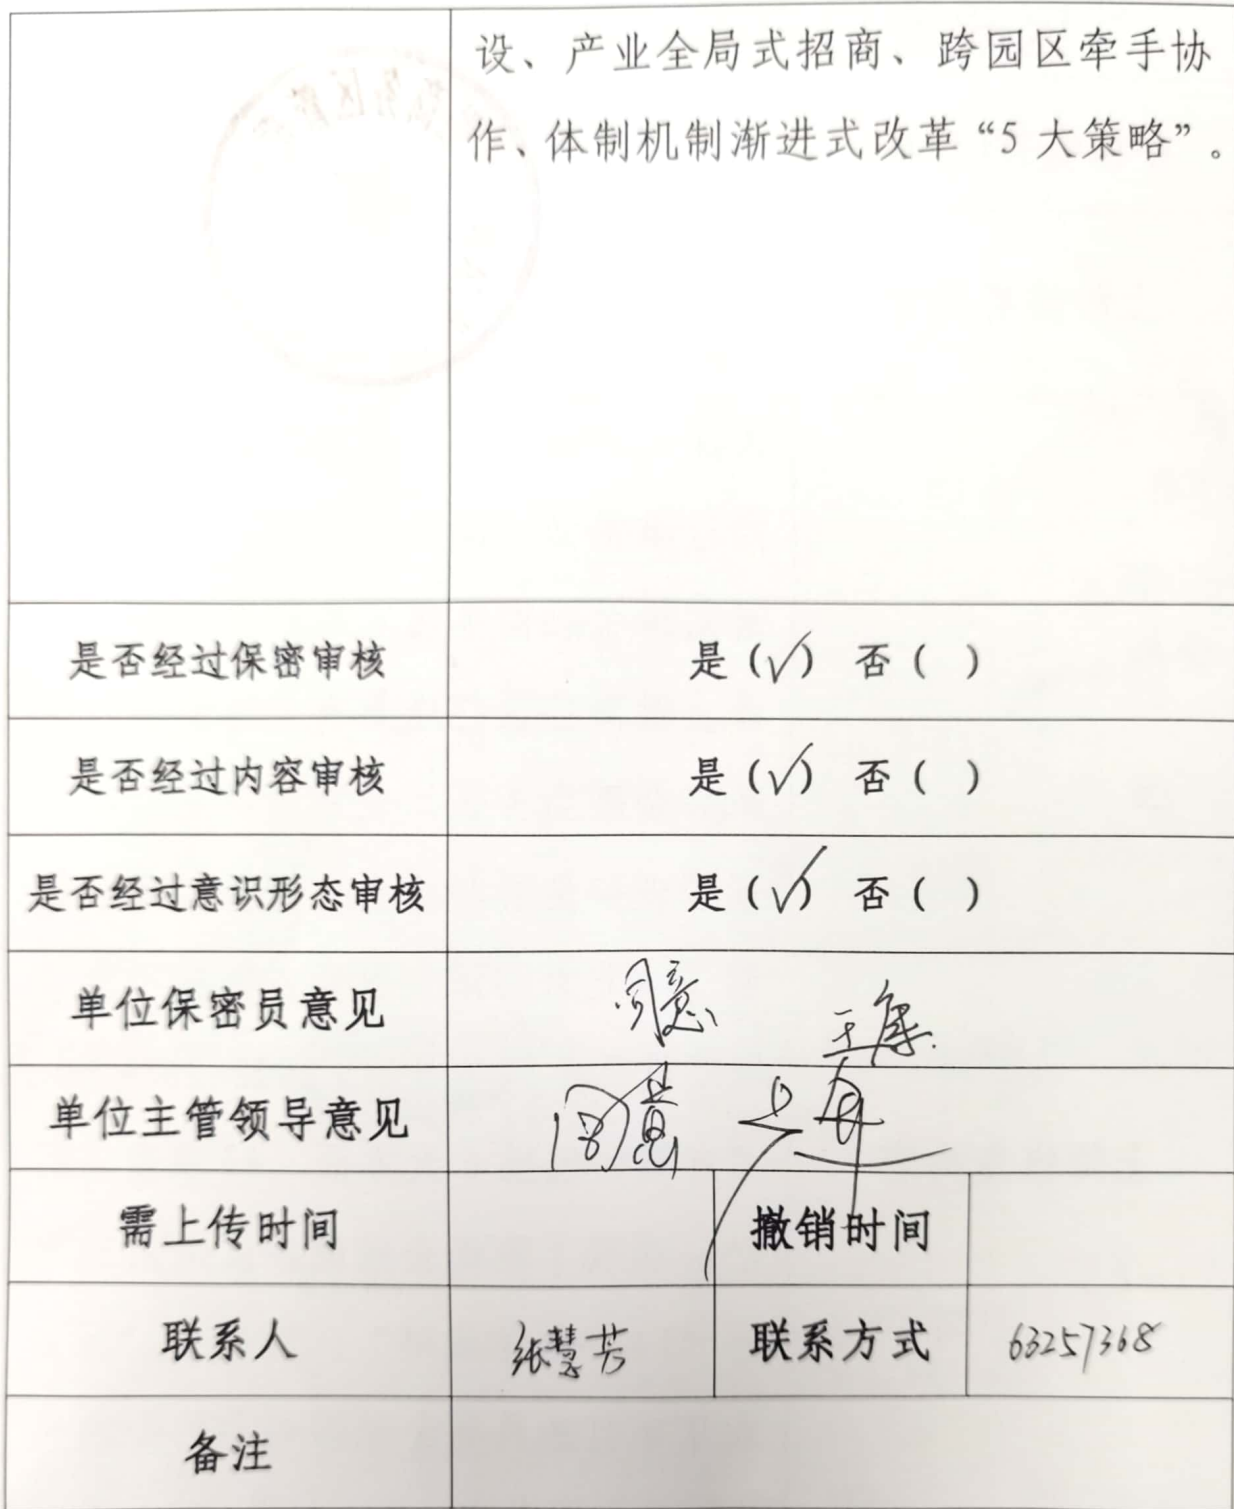 设、产业全局式招商、跨园区牵手协
作、体制机制渐进式改革“5大策略”。
是否经过保密审核 是(√) 否( )
是否经过内容审核 是(√) 否( )
是否经过意识形态审核 是(√) 否( )
单位保密员意见 同意
单位主管领导意见 同意
需上传时间 撤销时间
联系人 张慧芳 联系方式 63257368
备注